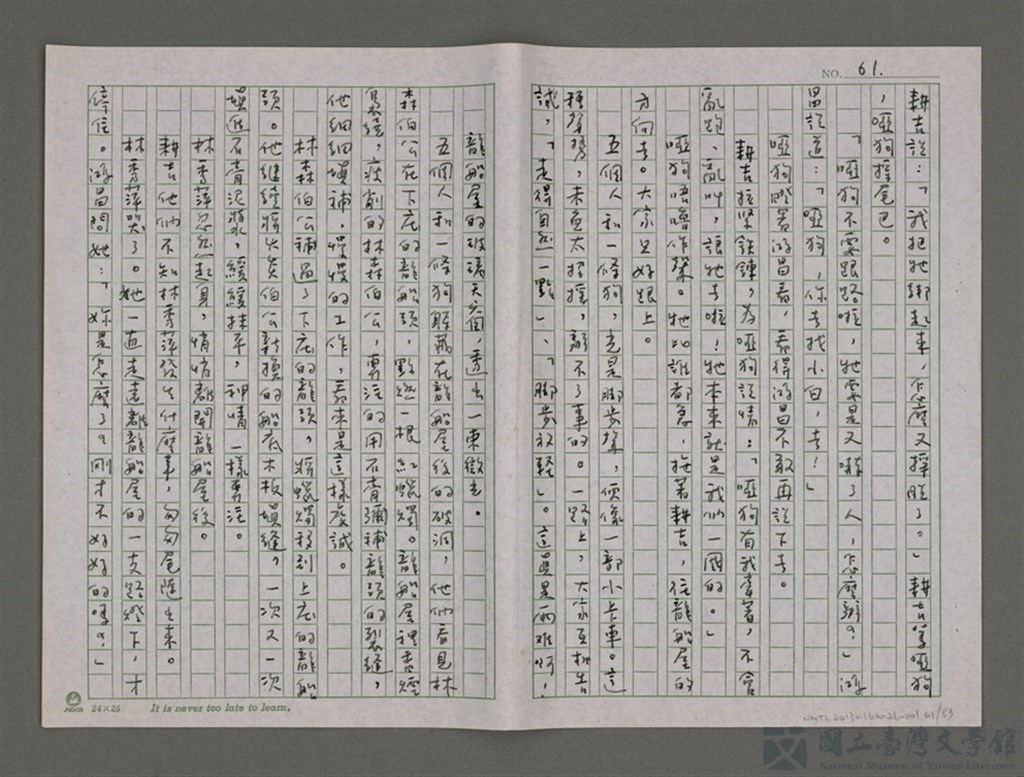 NO. 61.
耕吉說：「我把牠綁起來，怎麼又掙脫了。」耕吉拿啞狗
，啞狗搖尾巴。
「啞狗不要跟路啦，牠要是又嚇了人，怎麼辦？」鴻
昌說道：「啞狗，你去找小白，去！」
啞狗瞪著鴻昌看，看得鴻昌不敢再說下去。
耕吉拉緊鐵鍊，為啞狗說情：「啞狗有我牽著，不會
亂跑、亂叫，讓牠去啦！牠本來就是我們一國的。」
啞狗唔嚕作聲。牠比誰都急，拖著耕吉，往龍船屋的
方向去。大家只好跟上。
五個人和一條狗，光是腳步聲，便像一部小卡車。這
種聲勢，未免太招搖，辦不了事的。一路上，大家互相告
誡，「走得自然一點」、「腳步放輕」。這真是兩難啊！
龍船屋的玻璃天窗，透出一束微光。
五個人和一條狗躲藏在龍船屋後的破洞，他們看見林
森伯公在下庄的龍船頭，點燃一根紅蠟燭。龍船屋裡香煙
裊繞，瘦削的林森伯公，專注的用石膏彌補龍頭的裂縫，
他細細填補，慢慢的工作，看來是這樣虔誠。
林森伯公補過了下庄的龍頭，將蠟燭移到上庄的龍船
頭。他繼續將火炎伯公新換的船底木板填縫，一次又一次
填進石膏泥漿，緩緩抹平，神情一樣專注。
林秀萍忽然起身，悄悄離開龍船屋後。
耕吉他們不知林秀萍發生什麼事，匆匆尾隨出來。
林秀萍哭了。她一直走遠離龍船屋的一支路燈下，才
停住。鴻昌問她：「妳是怎麼了？剛才不好好的嗎？」
24×25
It is never too late to learn,
NMTL20130160026-001 61/83
國立臺灣文學館
National Museum of Taiwan Literature